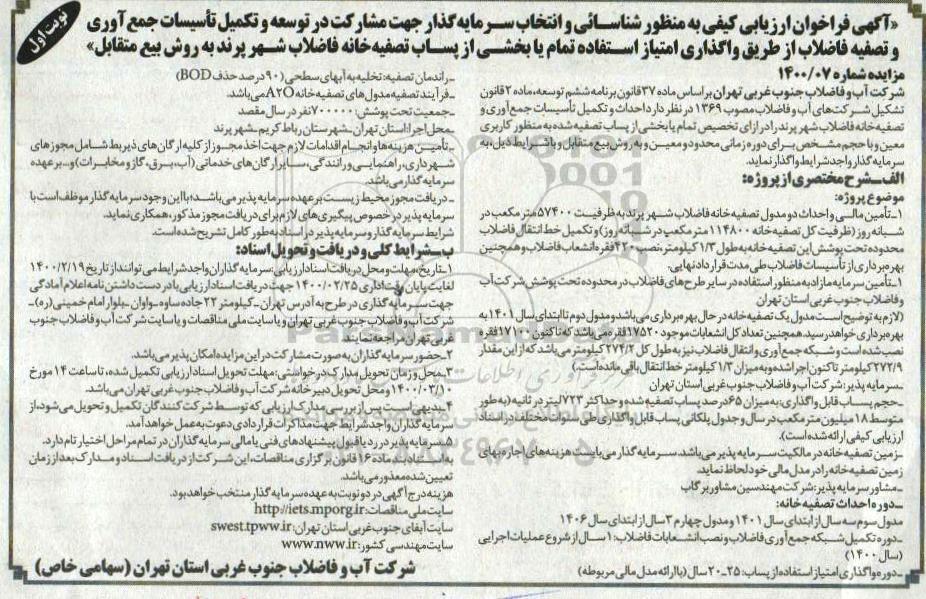 نوبت اول
«آگهی فراخوان ارزیابی کیفی به منظور شناسائی و انتخاب سرمایه گذار جهت مشارکت در توسعه و تکمیل تأسیسات جمع آوری
و تصفیه فاضلاب از طریق واگذاری امتیاز استفاده تمام یا بخشی از پساب تصفیه خانه فاضلاب شهر پرند به روش بیع متقابل»
مزایده شماره ۱۴۰۰/۰۷
شرکت آب و فاضلاب جنوب غربی تهران بر اساس ماده ۳۷ قانون برنامه ششم توسعه، ماده ۲ قانون
تشکیل شرکت های آب و فاضلاب مصوب ۱۳۶۹ در نظر دارد احداث و تکمیل تأسیسات جمع آوری و
تصفیه خانه فاضلاب شهر پرند را در ازای تخصیص تمام یا بخشی از پساب تصفیه شده به منظور کاربری
معین و با حجم مشخص برای دوره زمانی محدود و معین و به روش بیع متقابل و با شرایط ذیل، به
سرمایه گذار واجد شرایط واگذار نماید.
الف_شرح مختصری از پروژه:
موضوع پروژه:
۱_تأمین مالی و احداث دو مدول تصفیه خانه فاضلاب شهر پرند به ظرفیت ۵۷۴۰۰ متر مکعب در
شبانه روز (ظرفیت کل تصفیه خانه ۱۱۴۸۰۰ متر مکعب در شبانه روز) و تکمیل خط انتقال فاضلاب
محدوده تحت پوشش این تصفیه خانه به طول ۱/۳ کیلومتر، نصب ۴۲۰ فقره انشعاب فاضلاب و همچنین
بهره برداری از تأسیسات فاضلاب طی مدت قرارداد نهایی.
۱_تأمین سرمایه مازاد به منظور استفاده در سایر طرح های فاضلاب در محدوده تحت پوشش شرکت آب
و فاضلاب جنوب غربی استان تهران
(لازم به توضیح است مدول یک تصفیه خانه در حال بهره برداری می باشد و مدول دوم تا ابتدای سال ۱۴۰۱ به
بهره برداری خواهد رسید. همچنین تعداد کل انشعابات موجود ۱۷۵۲۰ فقره می باشد که تاکنون ۱۷۱۰۰ فقره
نصب شده است و شبکه جمع آوری و انتقال فاضلاب نیز به طول کل ۲۷۴/۲ کیلومتر می باشد که از این مقدار
۲۷۲/۹ کیلومتر تاکنون اجرا شده و به میزان ۱/۳ کیلومتر خط انتقال باقی مانده است)
_سرمایه پذیر: شرکت آب و فاضلاب جنوب غربی استان تهران
_حجم پساب قابل واگذاری: به میزان ۶۵ درصد پساب تصفیه شده و حداکثر ۷۲۳ لیتر در ثانیه (به طور
متوسط ۱۸ میلیون متر مکعب در سال و جدول پلکانی پساب قابل واگذاری طی سنوات مختلف در اسناد
ارزیابی کیفی ارائه شده است).
_زمین تصفیه خانه در مالکیت سرمایه پذیر می باشد. سرمایه گذار می بایست هزینه های اجاره بهای
زمین تصفیه خانه را در مدل مالی خود لحاظ نماید.
_مشاور سرمایه پذیر: شرکت مهندسین مشاور بر گاب
_دوره احداث تصفیه خانه:
مدول سوم سه سال از ابتدای سال ۱۴۰۱ و مدول چهارم ۳ سال از ابتدای سال ۱۴۰۶
_دوره تکمیل شبکه جمع آوری فاضلاب و نصب انشعابات فاضلاب: ۱ سال از شروع عملیات اجرایی
(سال ۱۴۰۰)
_دوره واگذاری امتیاز استفاده از پساب: ۲۵_۲۰ سال (با ارائه مدل مالی مربوطه)
_راندمان تصفیه: تخلیه به آبهای سطحی (۹۰ درصد حذف BOD)
_فرآیند تصفیه مدول های تصفیه خانه A2O می باشد.
_جمعیت تحت پوشش: ۷۰۰۰۰۰ نفر در سال مقصد
_محل اجرا: استان تهران_شهرستان رباط کریم_شهر پرند
_تأمین هزینه ها و انجام اقدامات لازم جهت اخذ مجوز از کلیه ارگان های ذیربط شامل مجوزهای
شهرداری، راهنمایی و رانندگی، سایر ارگان های خدماتی (آب، برق، گاز و مخابرات) و... بر عهده
سرمایه گذار می باشد.
_دریافت مجوز محیط زیست بر عهده سرمایه پذیر می باشد؛ با این وجود سرمایه گذار موظف است با
سرمایه پذیر در خصوص پیگیری های لازم برای دریافت مجوز مذکور، همکاری نماید.
شرایط سرمایه گذار و سرمایه پذیر در اسناد به طور کامل تشریح شده است.
ب_شرایط کلی و دریافت و تحویل اسناد:
۱_تاریخ، مهلت و محل دریافت اسناد ارزیابی: سرمایه گذاران واجد شرایط می توانند از تاریخ ۱۴۰۰/۲/۱۹
لغایت پایان وقت اداری ۱۴۰۰/۰۲/۲۵ جهت دریافت اسناد ارزیابی با در دست داشتن نامه اعلام آمادگی
جهت سرمایه گذاری در طرح به آدرس تهران_کیلومتر ۲۲ جاده ساوه_واوان_بلوار امام خمینی (ره)_
شرکت آب و فاضلاب جنوب غربی تهران و یا سایت ملی مناقصات و یا سایت شرکت آب و فاضلاب جنوب
غربی تهران مراجعه نمایند.
۲_حضور سرمایه گذاران به صورت مشارکت در این مزایده امکان پذیر می باشد.
۳_محل و زمان تحویل مدارک درخواستی: مهلت تحویل اسناد ارزیابی تکمیل شده، تا ساعت ۱۴ مورخ
۱۴۰۰/۰۳/۱۰ و محل تحویل دبیرخانه شرکت آب و فاضلاب جنوب غربی تهران می باشد.
۴_بدیهی است پس از بررسی مدارک ارزیابی که توسط شرکت کنندگان تکمیل و تحویل می شود، از
سرمایه گذاران واجد شرایط جهت مذاکرات قراردادی دعوت به عمل خواهد آمد.
۵_سرمایه پذیر در رد یا قبول پیشنهادهای فنی یا مالی سرمایه گذاران در تمام مراحل اختیار تام دارد.
به استناد بند ماده ۱۶ قانون برگزاری مناقصات، این شرکت از دریافت اسناد و مدارک بعد از زمان
تعیین شده معذور می باشد.
هزینه درج آگهی در دو نوبت به عهده سرمایه گذار منتخب خواهد بود.
سایت ملی مناقصات: http://iets.mporg.ir
سایت آبفای جنوب غربی استان تهران: swest.tpww.ir
سایت مهندسی کشور: www.nww.ir
شرکت آب و فاضلاب جنوب غربی استان تهران (سهامی خاص)